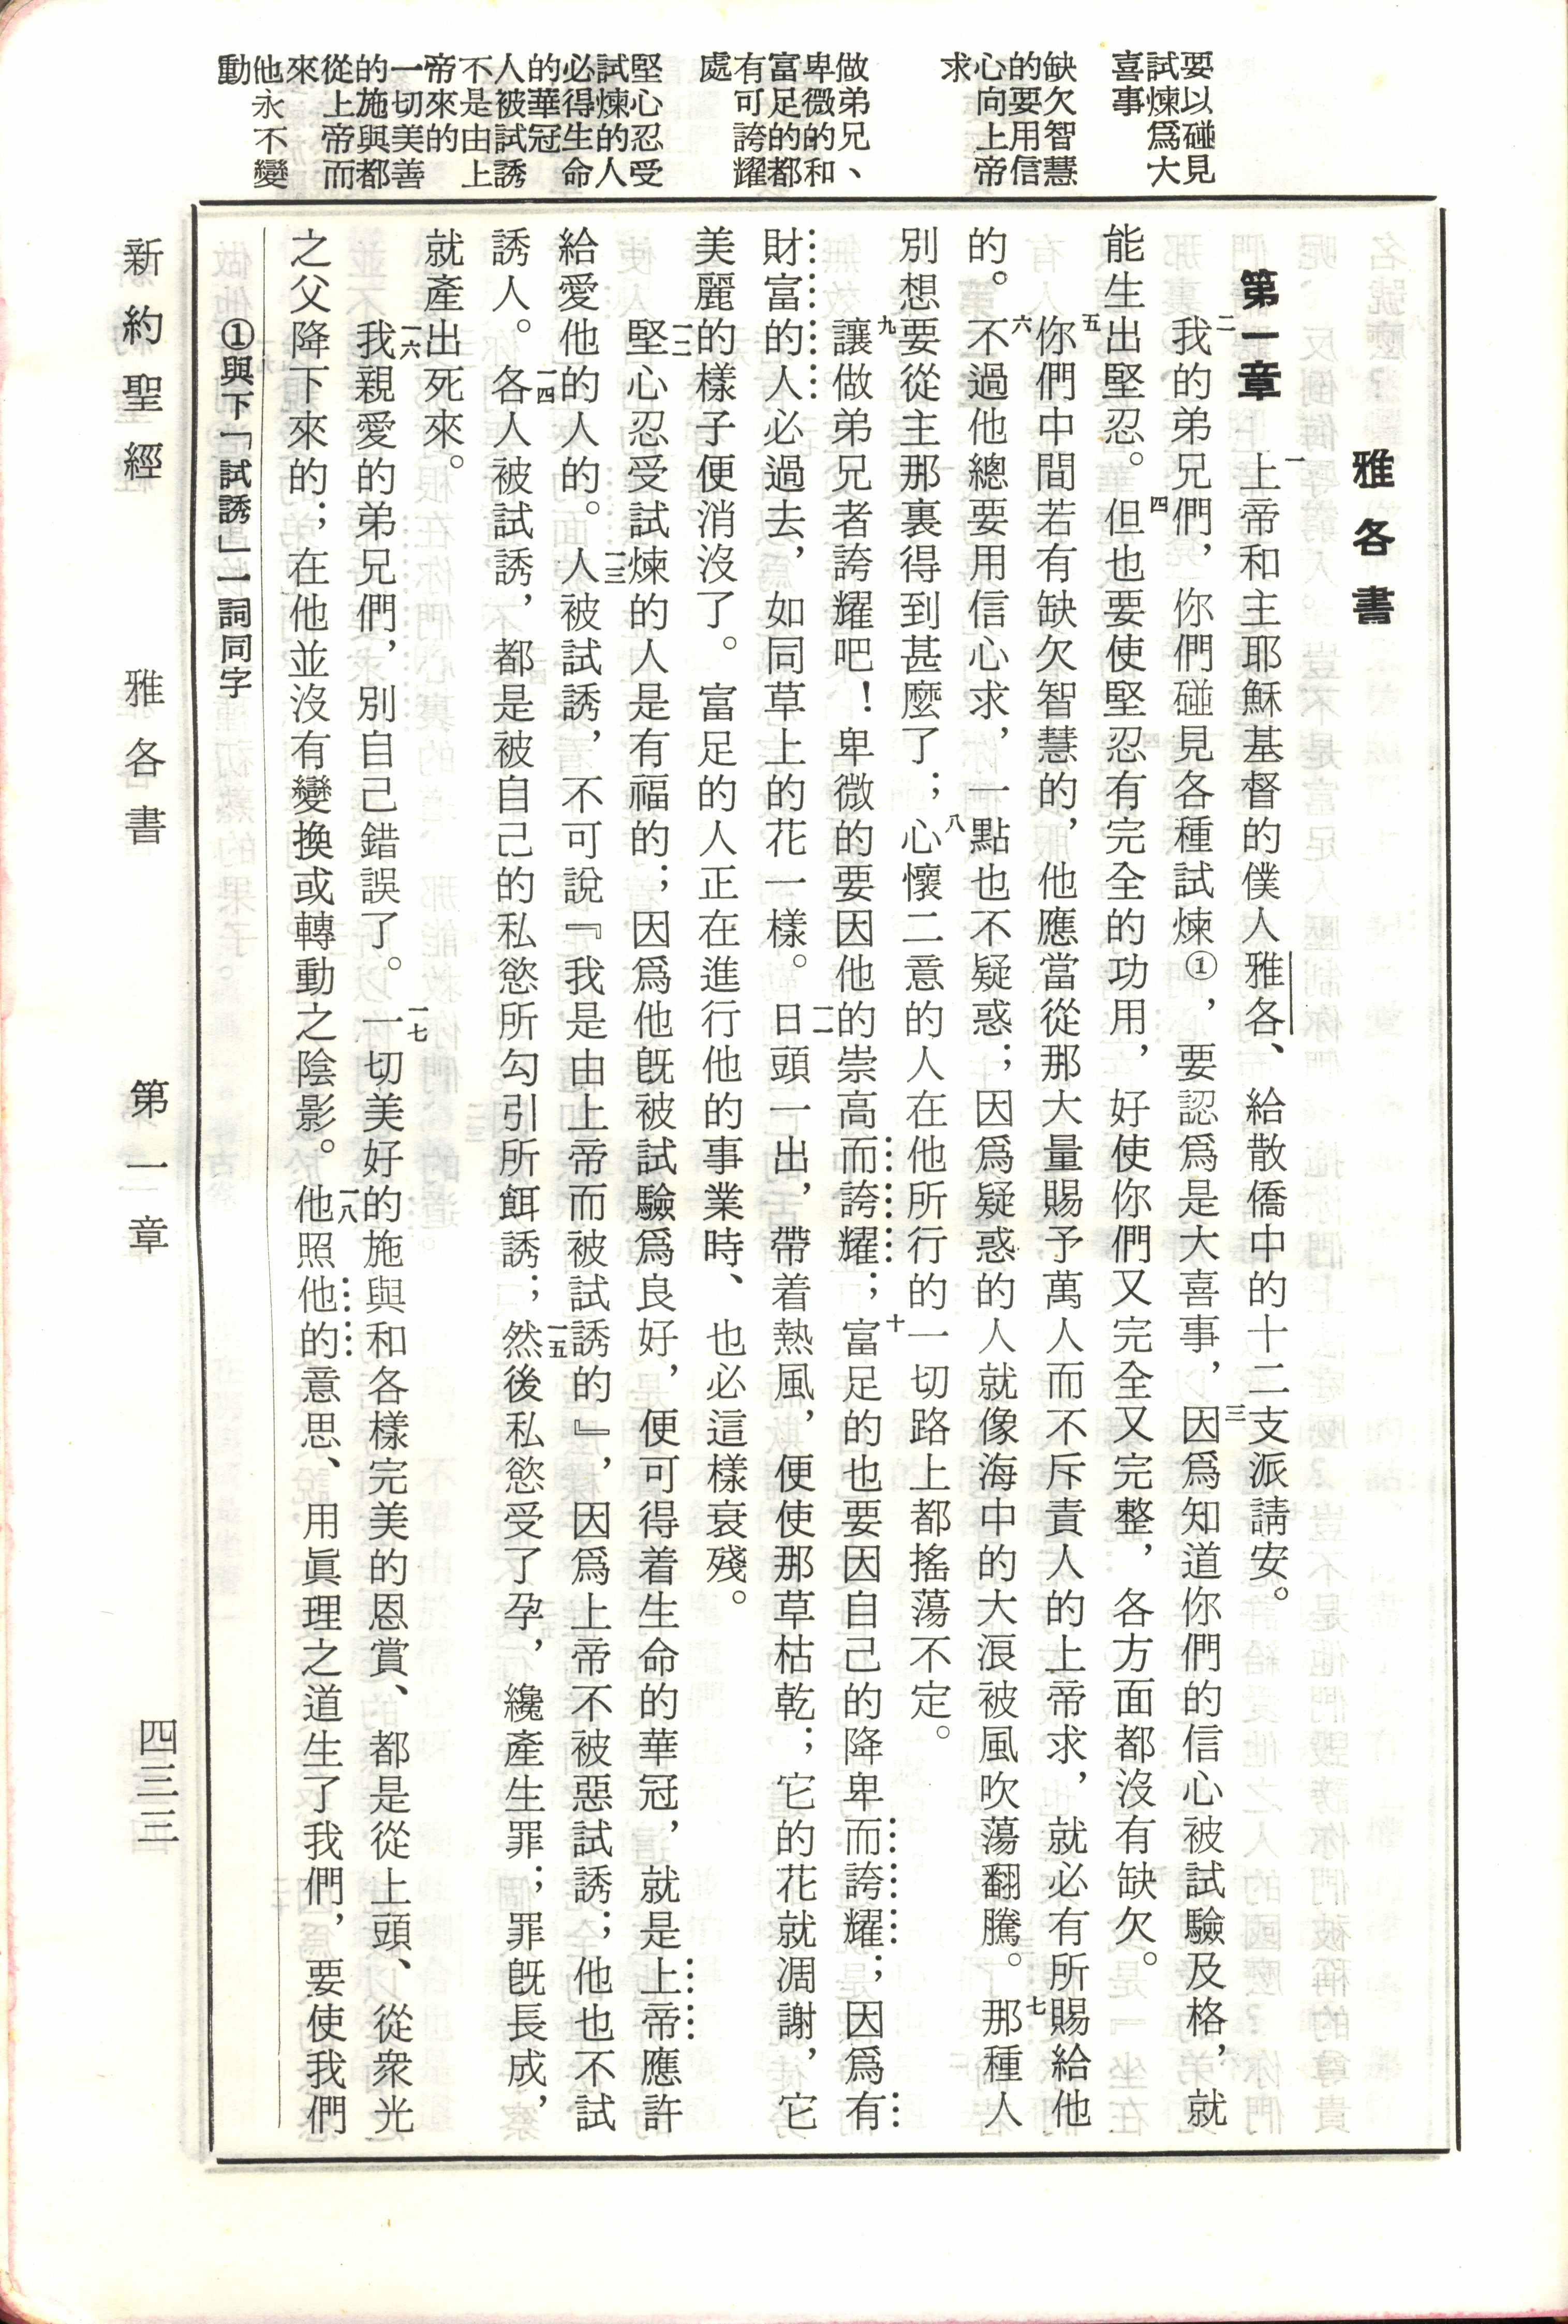 要以碰見
試煉爲大
喜事
缺欠智慧
的要用信
心向上帝
求
做弟兄、
卑微的和
富足的都
有可誇耀
處
堅心忍受
試煉的人
必得生命
的華冠
人被試誘
不是由上
帝來的
一切美善
的施與都
從上帝而
來
他永不變
動
雅各書
第一章 一上帝和主耶穌基督的僕人雅各、給散僑中的十二支派請安。
二我的弟兄們，你們碰見各種試煉①，要認爲是大喜事，三因爲知道你們的信心被試驗及格，就
能生出堅忍。四但也要使堅忍有完全的功用，好使你們又完全又完整，各方面都沒有缺欠。
五你們中間若有缺欠智慧的，他應當從那大量賜予萬人而不斥責人的上帝求，就必有所賜給他
的。六不過他總要用信心求，一點也不疑惑；因爲疑惑的人就像海中的大浪被風吹蕩翻騰。七那種人
別想要從主那裏得到甚麼了；八心懷二意的人在他所行的一切路上都搖蕩不定。
九讓做弟兄者誇耀吧！卑微的要因他的崇高而誇耀；十富足的也要因自己的降卑而誇耀；因爲有
財富的人必過去，如同草上的花一樣。一一日頭一出，帶着熱風，便使那草枯乾；它的花就凋謝，它
美麗的樣子便消沒了。富足的人正在進行他的事業時、也必這樣衰殘。
一二堅心忍受試煉的人是有福的；因爲他旣被試驗爲良好，便可得着生命的華冠，就是上帝應許
給愛他的人的。一三人被試誘，不可說『我是由上帝而被試誘的』，因爲上帝不被惡試誘；他也不試
誘人。一四各人被試誘，都是被自己的私慾所勾引所餌誘；一五然後私慾受了孕，纔產生罪；罪旣長成，
就產出死來。
一六我親愛的弟兄們，別自己錯誤了。一七一切美好的施與和各樣完美的恩賞、都是從上頭、從衆光
之父降下來的；在他並沒有變換或轉動之陰影。一八他照他的意思、用眞理之道生了我們，要使我們
①與下「試誘」一詞同字
新約聖經 雅各書 第一章 四三三